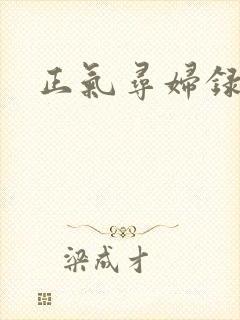 正氣尋婦録
梁成才